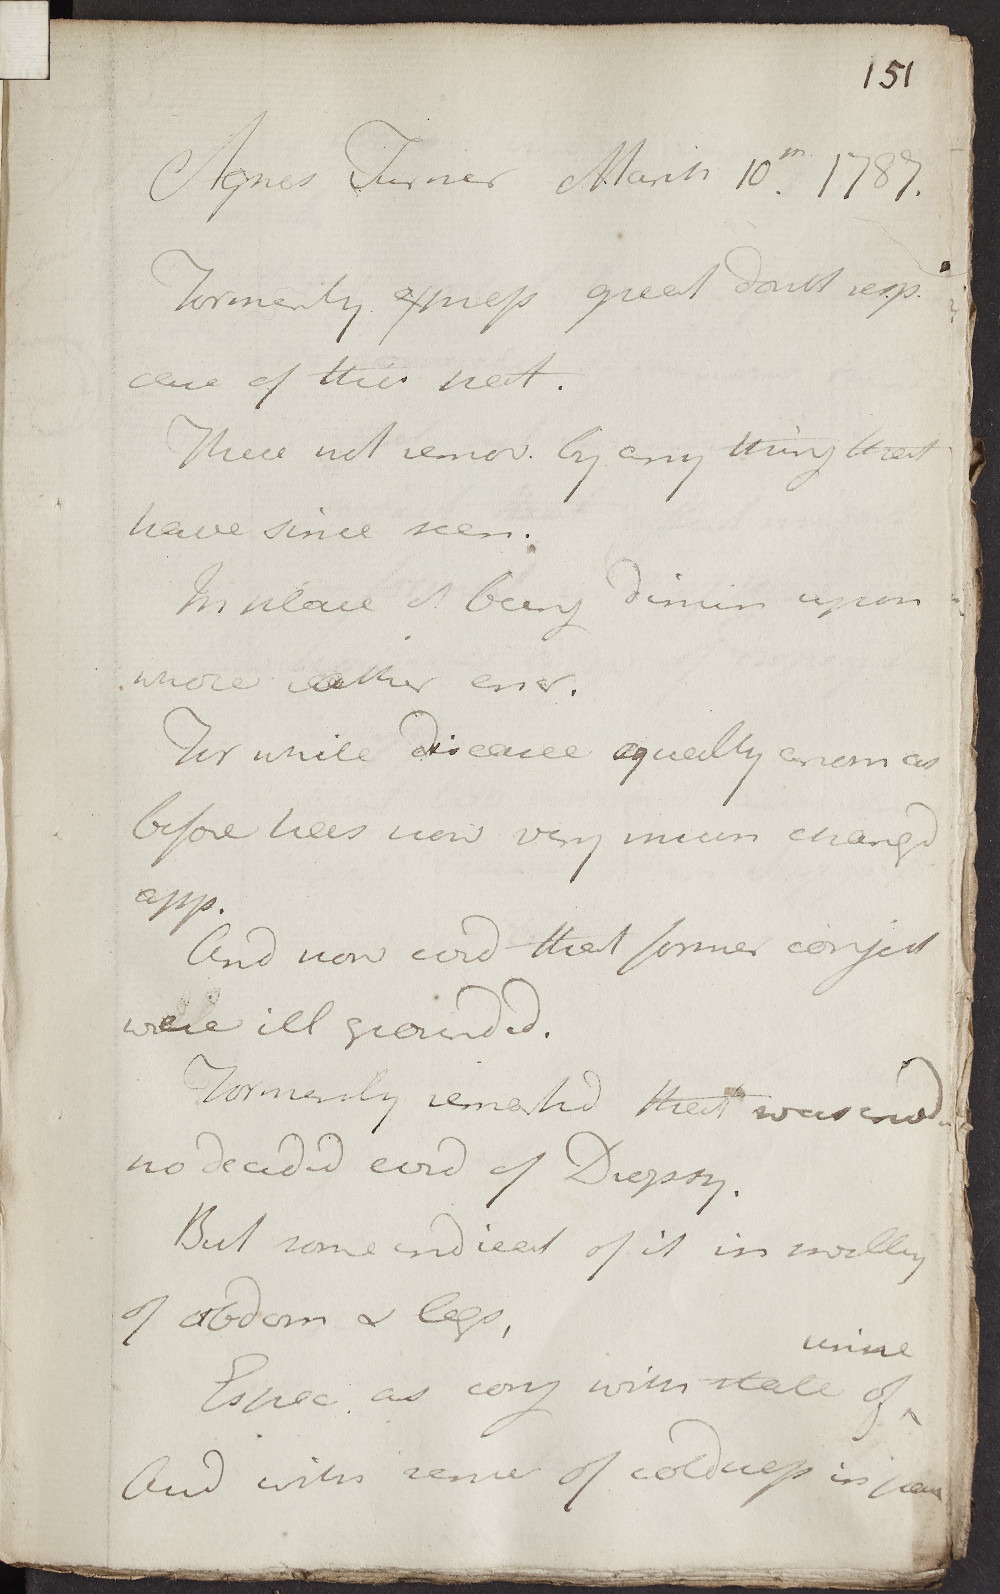 151
Agnes Turner March 10th. 1787.
Formerly express great doubt resp.
case of this pat.
These not remov. by any thing that
have since seen.
In place of being dimin upon
whole rather encr.
For while disease equally anom as
before has now very much changd
app.
And now evid that former conject
were ill grounded.
Formerly remarkd that was indd
no decided evid of Dropsy.
But some indicat of it in swelling
of abdom & legs,
Espec. as conj with state of ^ urine
And with sense of coldness in